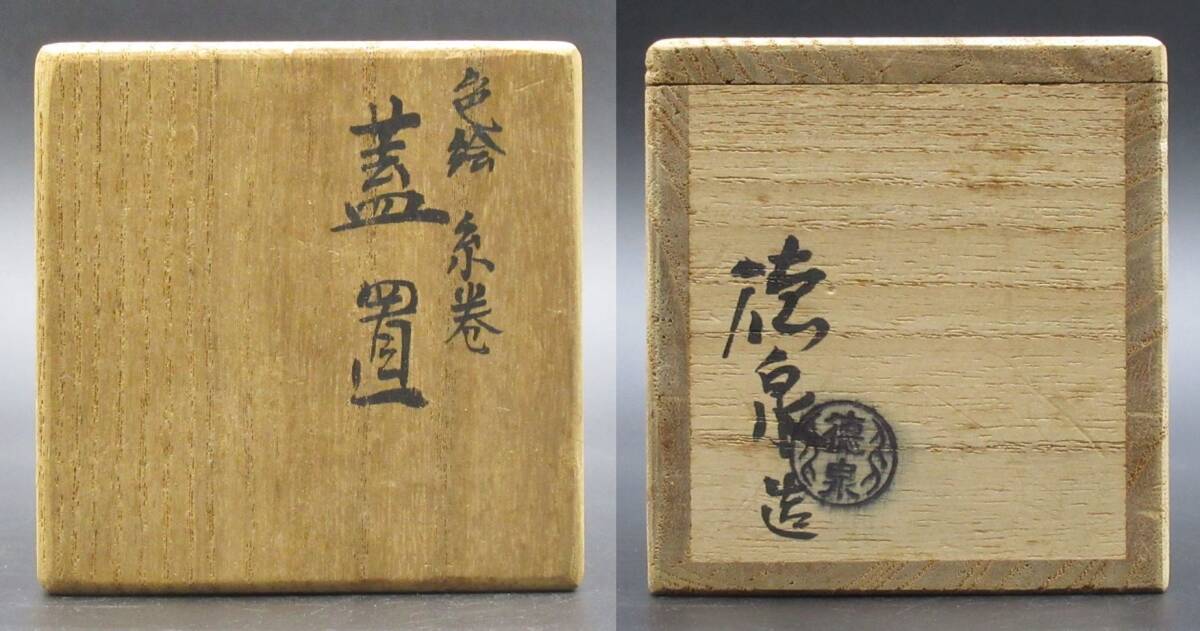 色絵 糸巻
蓋置
徳泉造
徳泉